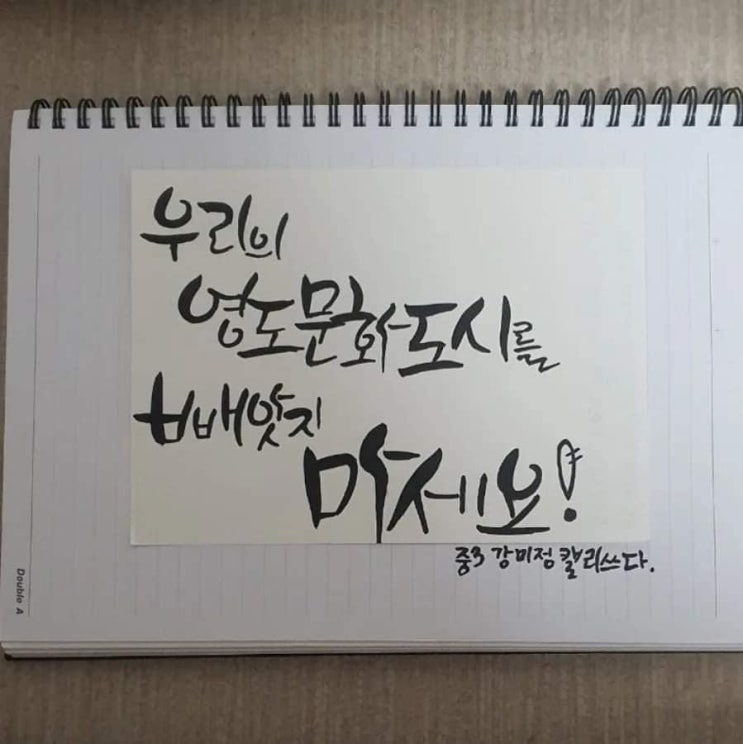 우리의
영도문화도시를
빼앗지
마세요!
중3 강미정 캘리쓰다.
Double A